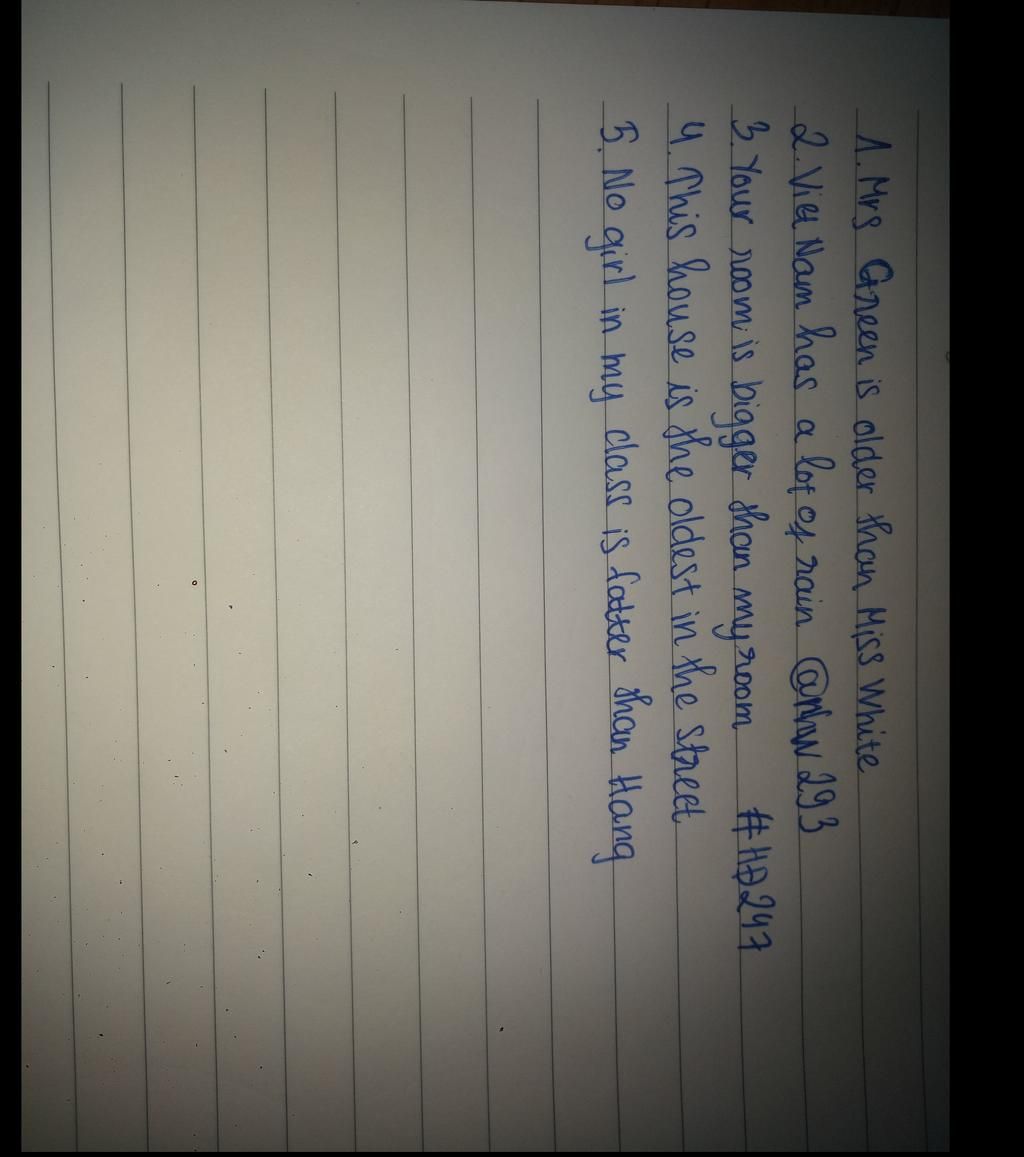 1. Mrs Green is older than Miss White
2. Việt Nam has a lot of rain @nhw293
3. Your room is bigger than my room #HĐ247
4. This house is the oldest in the street
5. No girl in my class is fatter than Hang